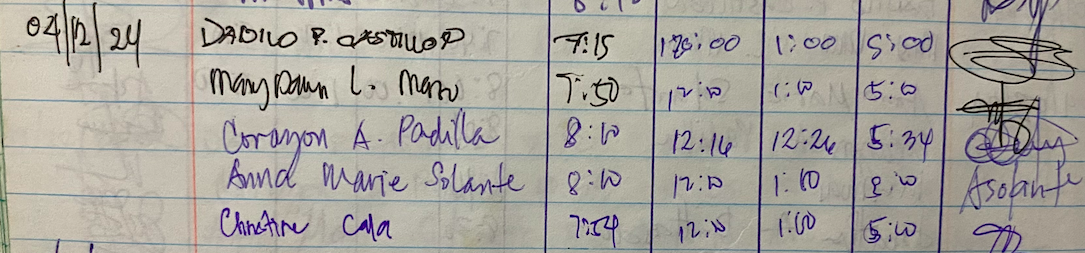 04/12/24 DADILO P. CASTILLO 7:15 12:00 1:00 5:00
Mary Dawn L. 7:50 12:10 1:10 5:10
Corazon A. Padilla 8:10 12:16 12:26 5:34
Anna Marie Solante 8:10 12:10 1:10 Asolante
Christine Cala 7:54 12:10 1:00 5:10